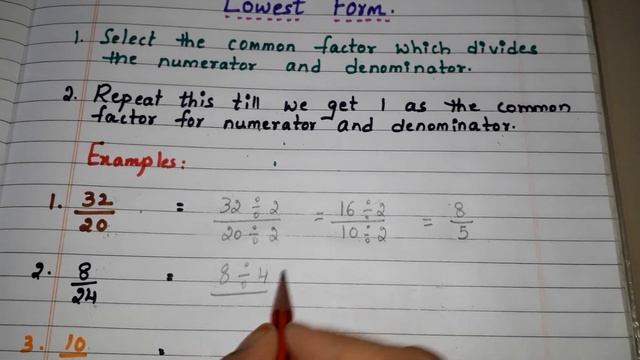 Lowest Form.
1. Select the common factor which divides
the numerator and denominator.
2. Repeat this till we get 1 as the common
factor for numerator and denominator.
Examples:
1. 32/20 = 32÷2/20÷2 = 16÷2/10÷2 = 8/5
2. 8/24 = 8÷4
3. 10